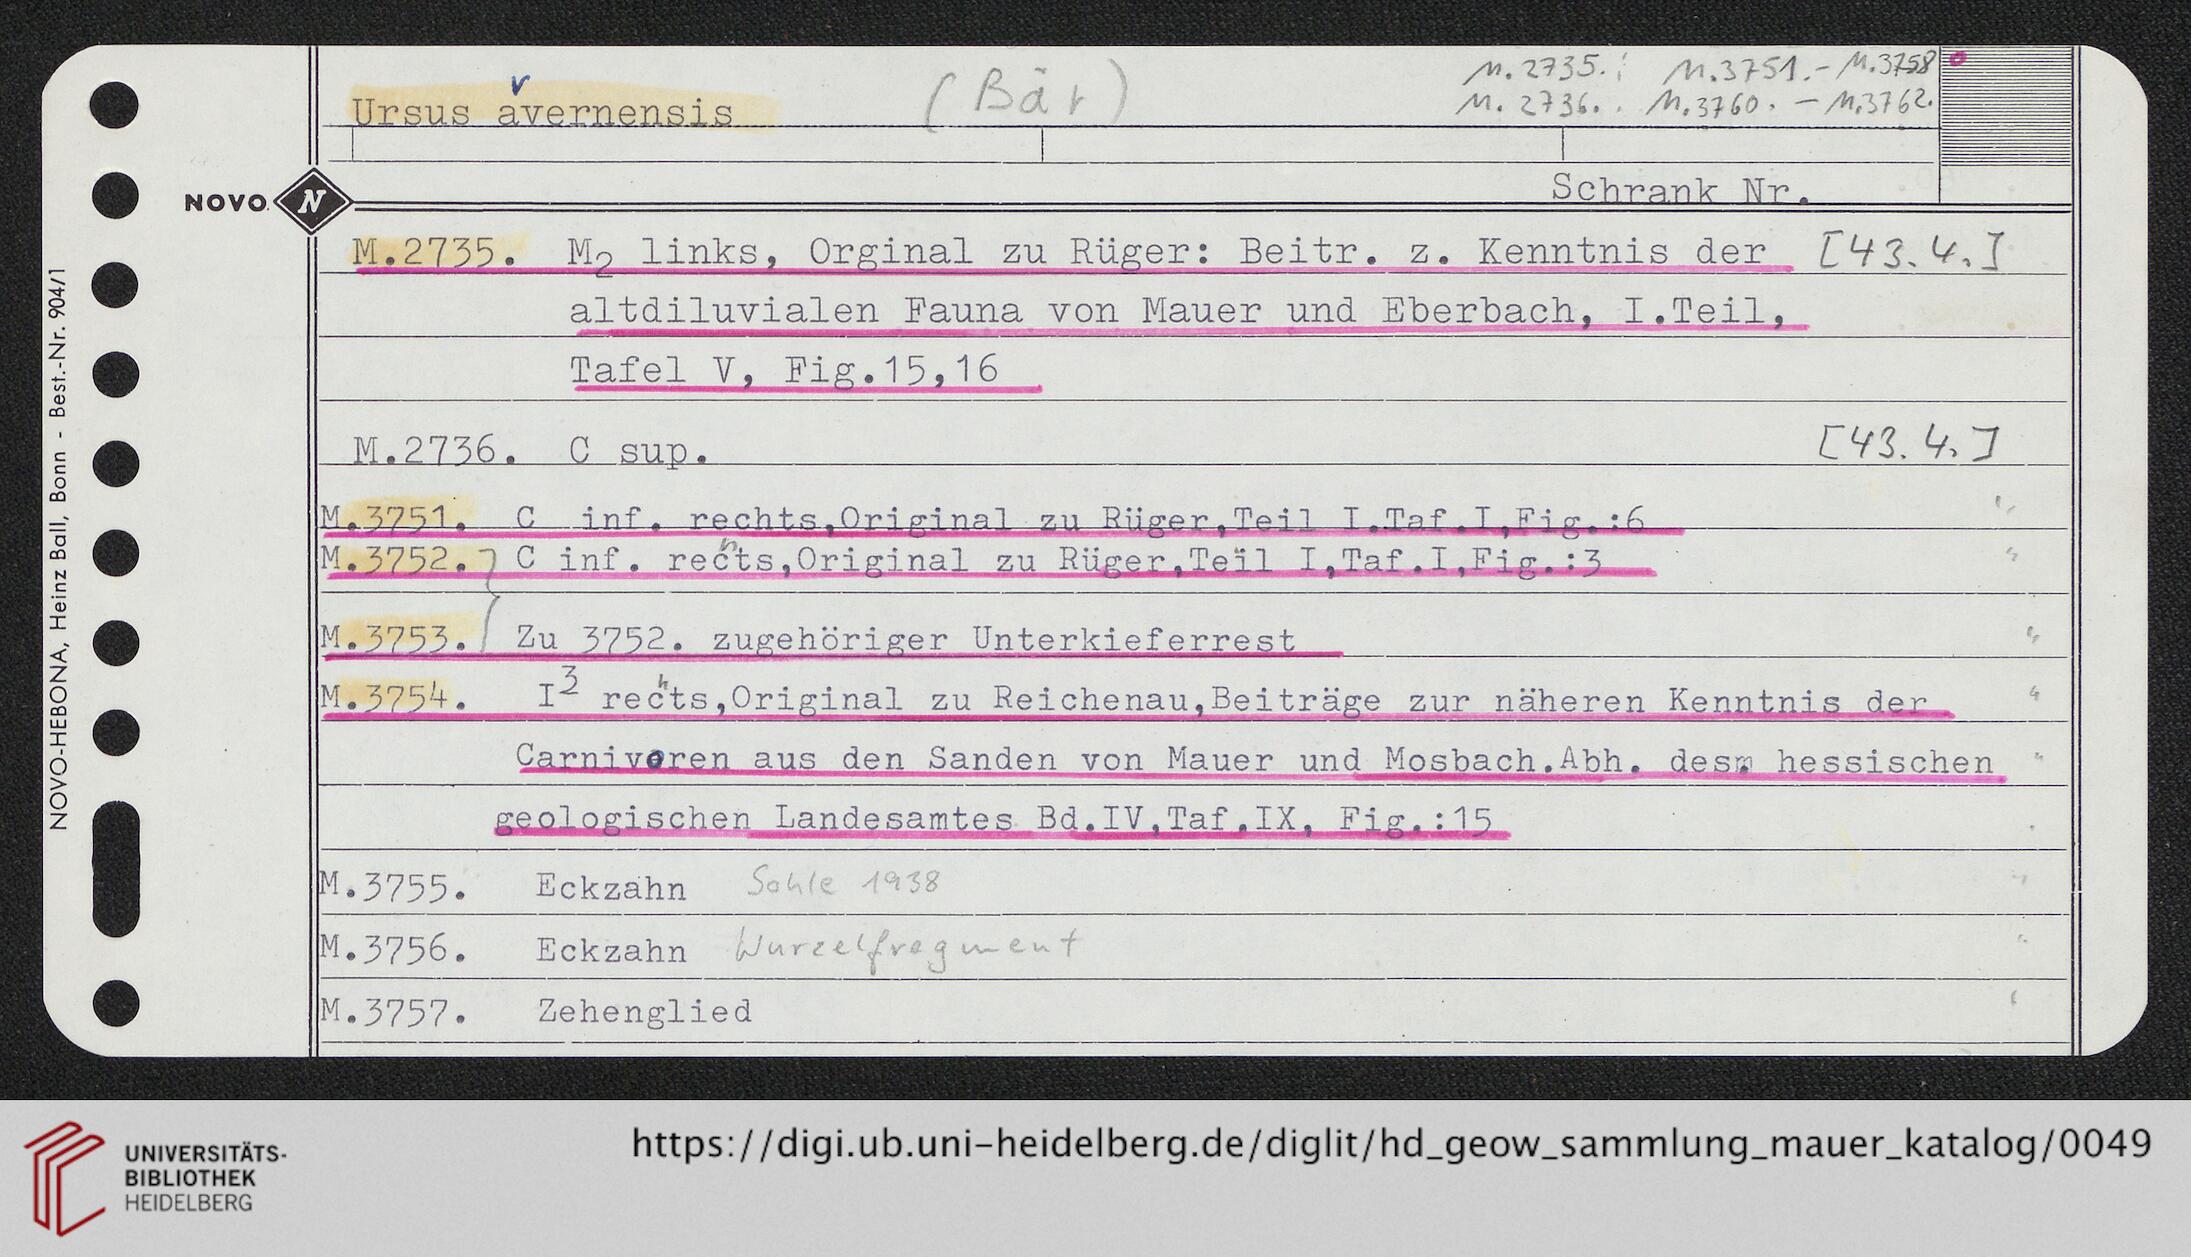 Ursus avernensis (Bär) M.2735.; M.3751.-M.3758
M.2736.. M.3760.-M.3762.
NOVO N
Schrank Nr.
M.2735. M2 links, Orginal zu Rüger: Beitr. z. Kenntnis der [43.4.]
altdiluvialen Fauna von Mauer und Eberbach, I.Teil,
Tafel V, Fig.15,16
M.2736. C sup. [43.4.]
M.3751. C inf. rechts,Original zu Rüger,Teil I.Taf.I,Fig.:6 "
M.3752. C inf. rechts,Original zu Rüger,Teil I,Taf.I,Fig.:3 "
M.3753. Zu 3752. zugehöriger Unterkieferrest "
M.3754. I3 rechts,Original zu Reichenau,Beiträge zur näheren Kenntnis der "
Carnivoren aus den Sanden von Mauer und Mosbach.Abh. des hessischen "
geologischen Landesamtes Bd.IV,Taf.IX, Fig.:15
M.3755. Eckzahn Sohle 1938 "
M.3756. Eckzahn Wurzelfragment "
M.3757. Zehenglied "
NOVO-HEBONA, Heinz Ball, Bonn - Best.-Nr. 904/1
UNIVERSITÄTS-
BIBLIOTHEK
HEIDELBERG
https://digi.ub.uni-heidelberg.de/diglit/hd_geow_sammlung_mauer_katalog/0049